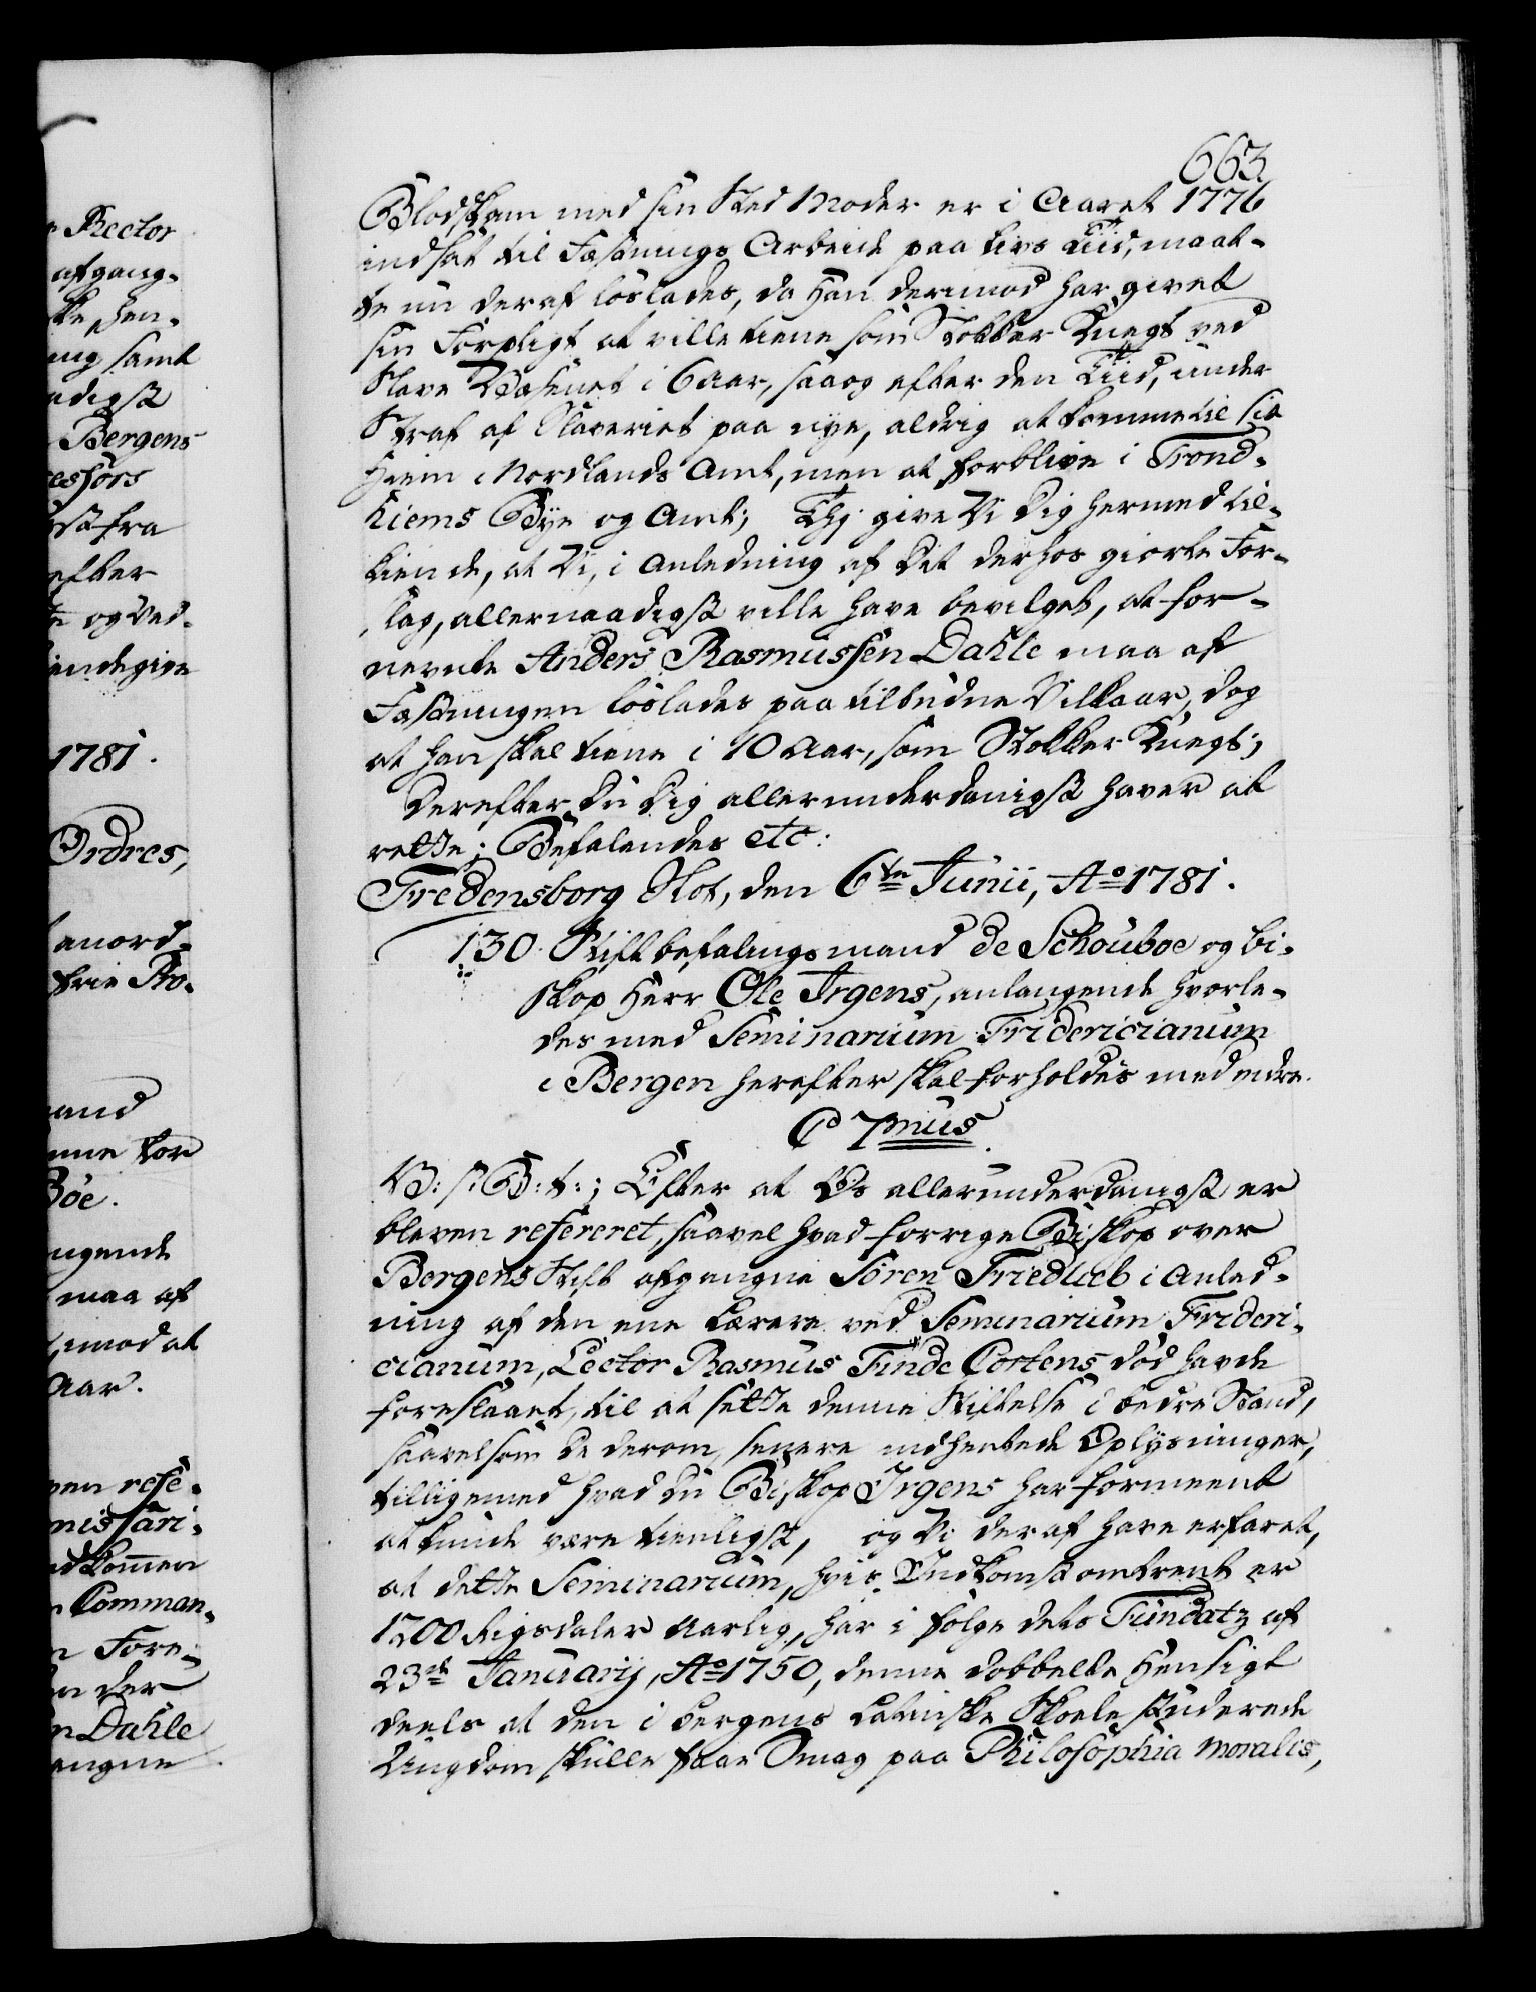 Rector
afgang-
ske hen-
ing samt
adigst
Bergens
essors
efter
og Ved-
tiendegive
1781.
Ordres,
anord-
frie Pro-
mand
Böe.
ngende
maa af
, imod at
Aar.
ven refe-
missari-
ndkom̄en
Comman-
Fore-
der
n Dahle
angne
663
Blodskam med sin Sted Moder er i Aaret 1776
indsat til Fæstnings Arbeide paa Livs Tiid, maat-
te nu deraf löslades, da Han derimod har givet
sin Forpligt at ville tiene som Stokker Knegt ved
Slave Væsenet i 6 Aar, saa og efter den Tiid, under
Straf af Slaveriet paa nye, aldrig at komme til sit
Hiem i Nordlands Amt, men at forblive i Trond-
hiems Bÿe og Amt; Thj give Vi Dig hermed til-
kiende, at Vi, i Anledning af Det derhos giorte For-
slag, allernaadigst ville have bevilget, at for-
nevnte Anders Rasmussen Dahle maa af
Fæstningen löslades paa tilbudne Vilkaar, dog
at han skal tiene i 10 Aar, som Stokker Knegt;
Derefter Du Dig allerunderdanigst haver at
rette; Befalendes etc:
Fredensborg Slot, den 6te Junii, Ao 1781.
130. Stiftbefalingsmand de Schouboe og Bi-
skop Herr Ole Irgens, anlangende hvorle-
des med Seminarium Fridericianum
i Bergen herefter skal forholdes med mere.
C 7mus.
V: S: G: T:; Efter at Os allerunderdanigst er
bleven refereret, saavel hvad forrige Biskop over
Bergens Stift afgangne Sören Friedlieb i Anled-
ning af den ene Lærere ved Seminarium Frideri-
cianum, Lector Rasmus Finde Cortens död havde
foreslaaet, til at sette denne Stiftelse i bedre Stand,
saavelsom de derom senere indhentede Oplÿsninger,
tilligemed hvad Du Biskop Irgens har formeent
at kunde være tienligst, og Vi deraf have erfaret,
at dette Seminarium, hvis Indkomst omtrent er
1200 Rigsdaler aarlig, har i fölge dets Fundatz af
23de Januarij, Ao 1750, denne dobbelte Hensigt
deels at den i Bergens Latinske Skoele studerede
Ungdom skulle faae Smag paa Philosophia moralis,